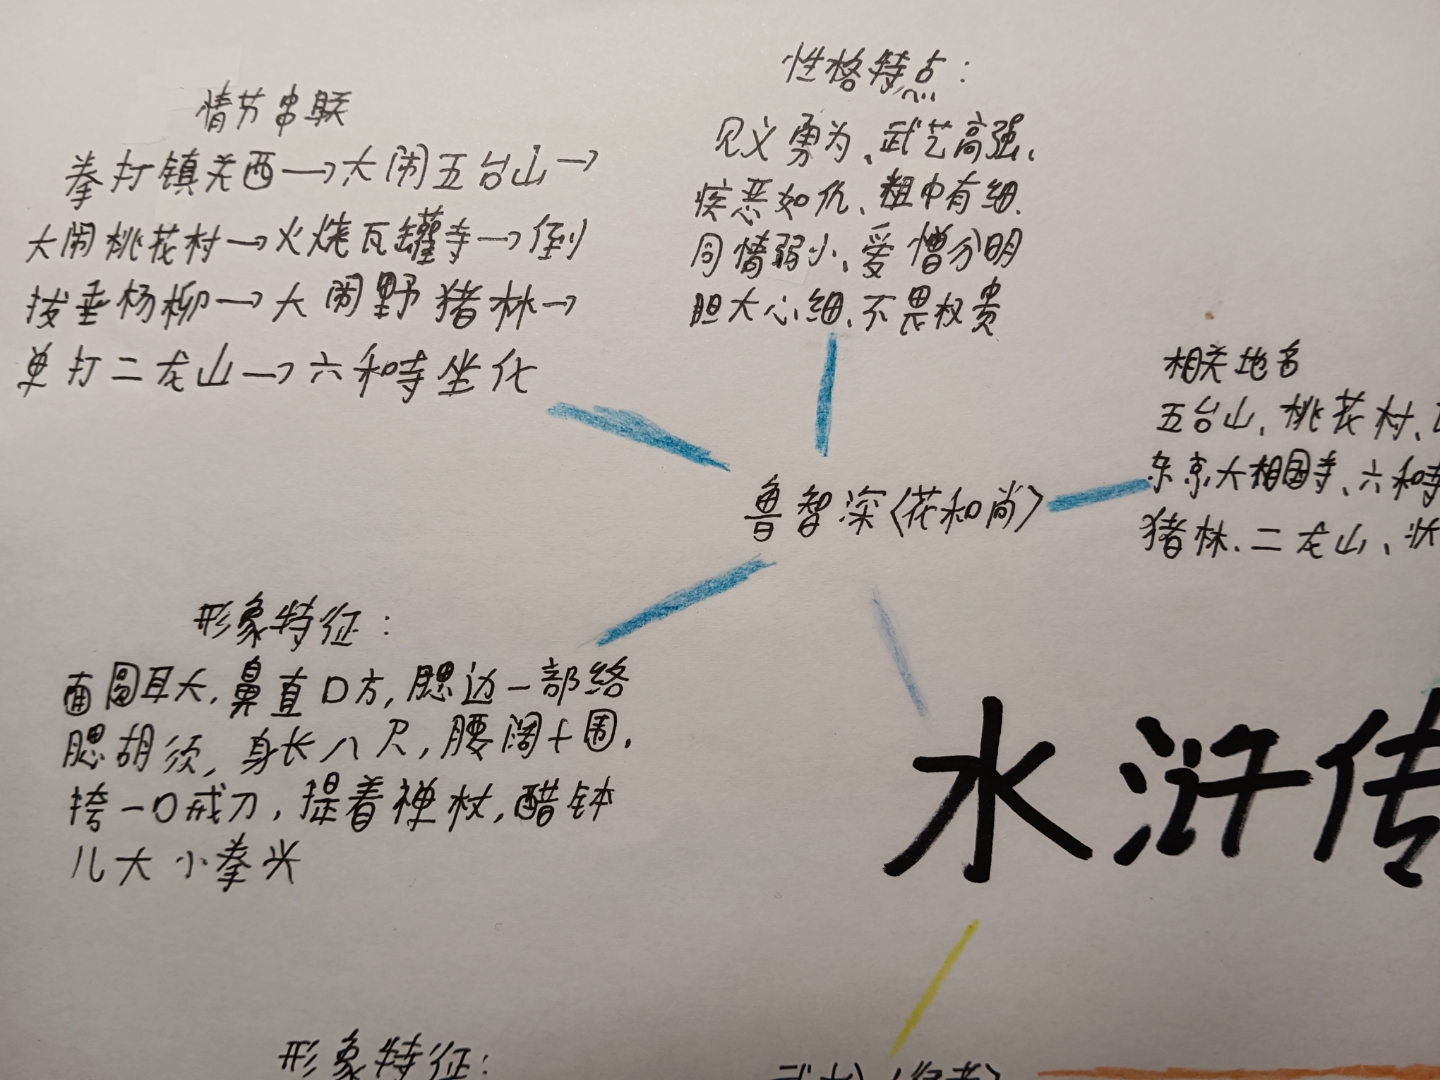 情节串联
拳打镇关西→大闹五台山→
大闹桃花村→火烧瓦罐寺→倒
拔垂杨柳→大闹野猪林→
单打二龙山→六和寺坐化
性格特点：
见义勇为、武艺高强、
疾恶如仇、粗中有细、
同情弱小、爱憎分明
胆大心细、不畏权贵
相关地名
五台山、桃花村、
东京大相国寺、六和寺
猪林、二龙山、状
鲁智深〈花和尚〉
形象特征：
面圆耳大，鼻直口方，腮边一部络
腮胡须，身长八尺，腰阔十围，
挎一口戒刀，提着禅杖，醋钵
儿大小拳头
水浒传
形象特征：